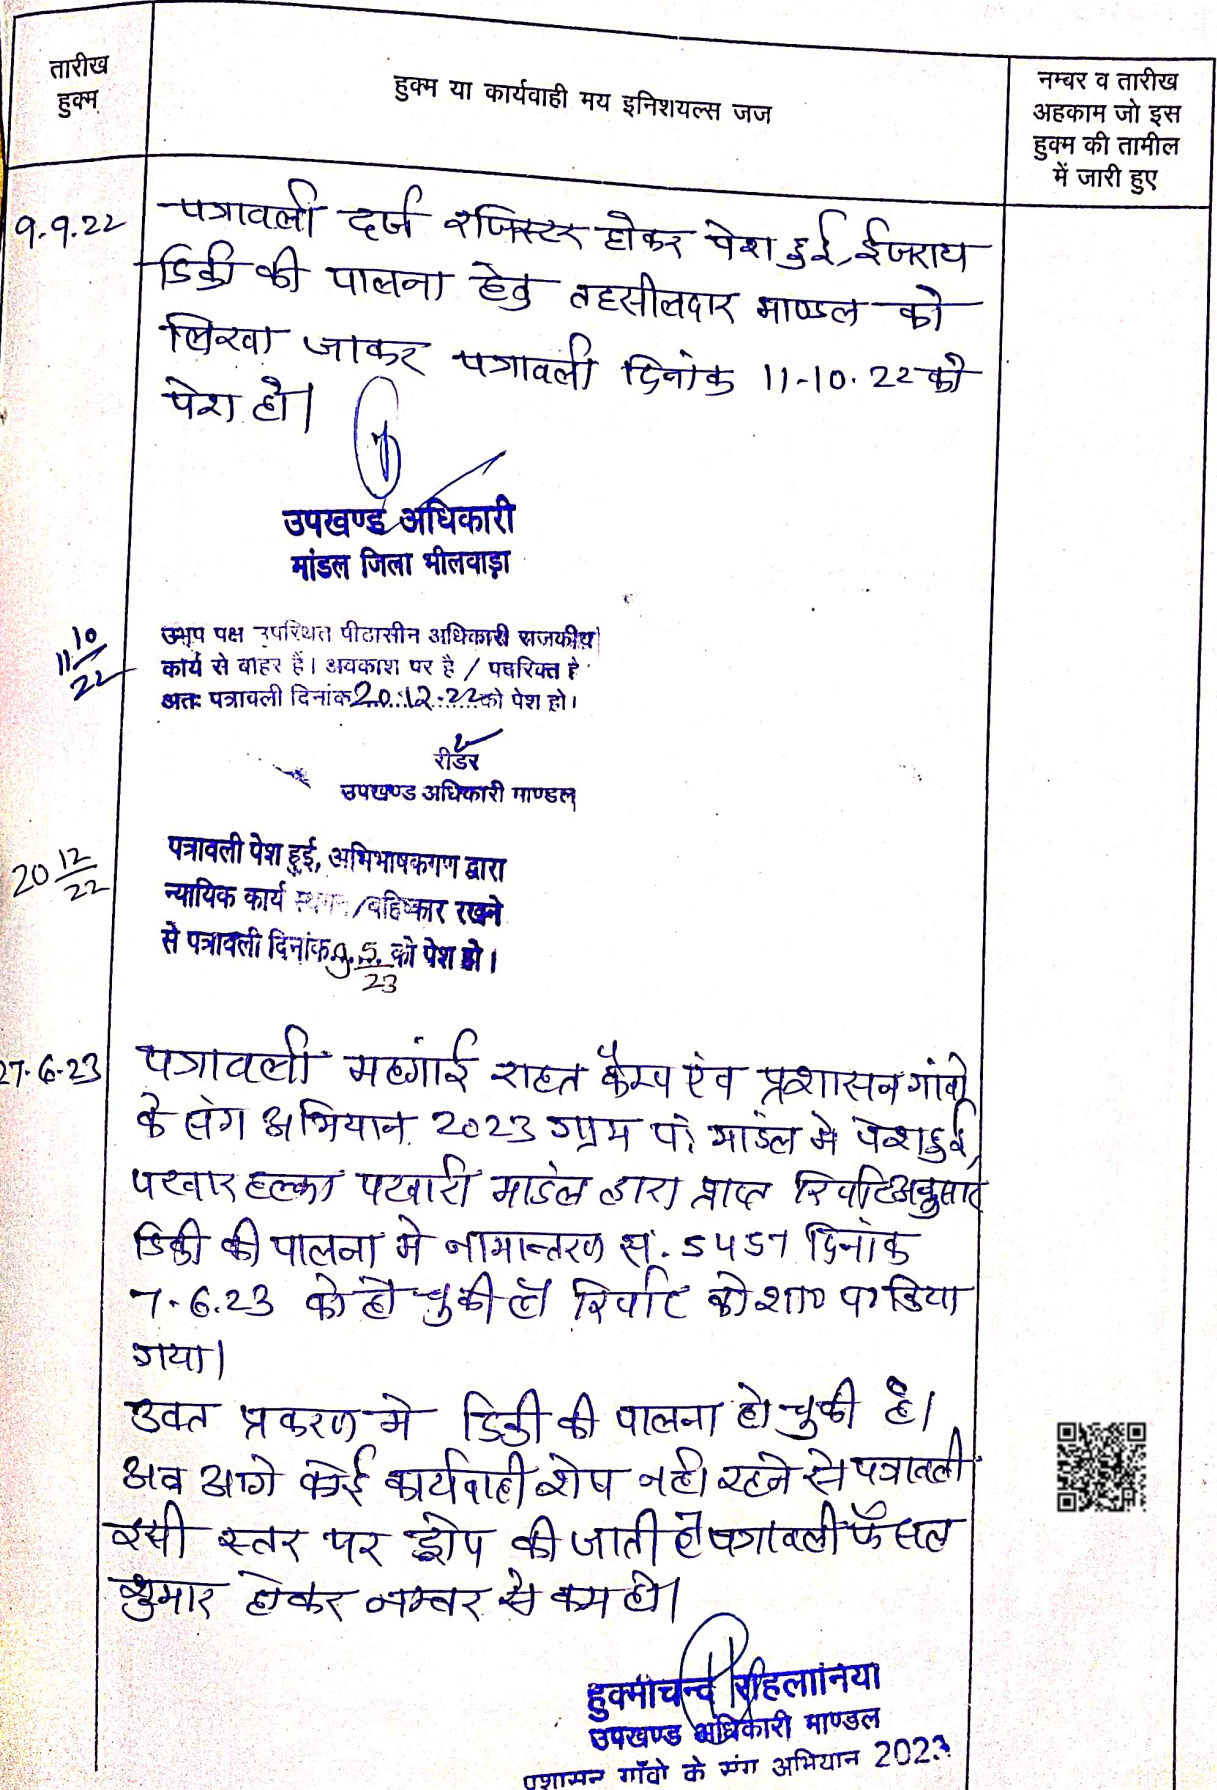 तारीख
हुक्म
हुक्म या कार्यवाही मय इनिशयल्स जज
नम्बर व तारीख
अहकाम जो इस
हुक्म की तामील
में जारी हुए
9.9.22 पत्रावली दर्ज रजिस्टर होकर पेश हुई, ईजराय
डिक्री की पालना हेतु तहसीलदार माण्डल को
लिखा जाकर पत्रावली दिनांक 11-10.22 को
पेश हो।
उपखण्ड अधिकारी
मांडल जिला भीलवाड़ा
11 10/22 उभय पक्ष उपस्थित पीठासीन अधिकारी राजकीय
कार्य से बाहर हैं। अवकाश पर है / पदरिक्त है
अतः पत्रावली दिनांक 20.12.22 को पेश हो।
रीडर
उपखण्ड अधिकारी माण्डल
20 12/22 पत्रावली पेश हुई, अभिभाषकगण द्वारा
न्यायिक कार्य स्थगन/बहिष्कार रखने
से पत्रावली दिनांक 9.5./23 को पेश हो।
27.6.23 पत्रावली महगांई राहत कैम्प एंव प्रशासन गांवो
के संग अभियान 2023 ग्राम पं. मांडल मे पेश हुई,
पटवार हल्का पटवारी मांडल द्वारा प्राप्त रिपोर्ट अनुसार
डिक्री की पालना मे नामान्तरण सं. 5457 दिनांक
7.6.23 को हो चुकी है। रिपोर्ट को शा
गया।
उक्त प्रकरण मे डिक्री की पालना हो चुकी है।
अब आगे कोई कार्यवाही शेष नही रहने से पत्रावली
इसी स्तर पर ड्रोप की जाती है। पत्रावली फैसल
शुमार होकर नम्बर से कम हो।
हुक्मीचन्द रोहिलानिया
उपखण्ड अधिकारी माण्डल
प्रशासन गाँवो के संग अभियान 2023